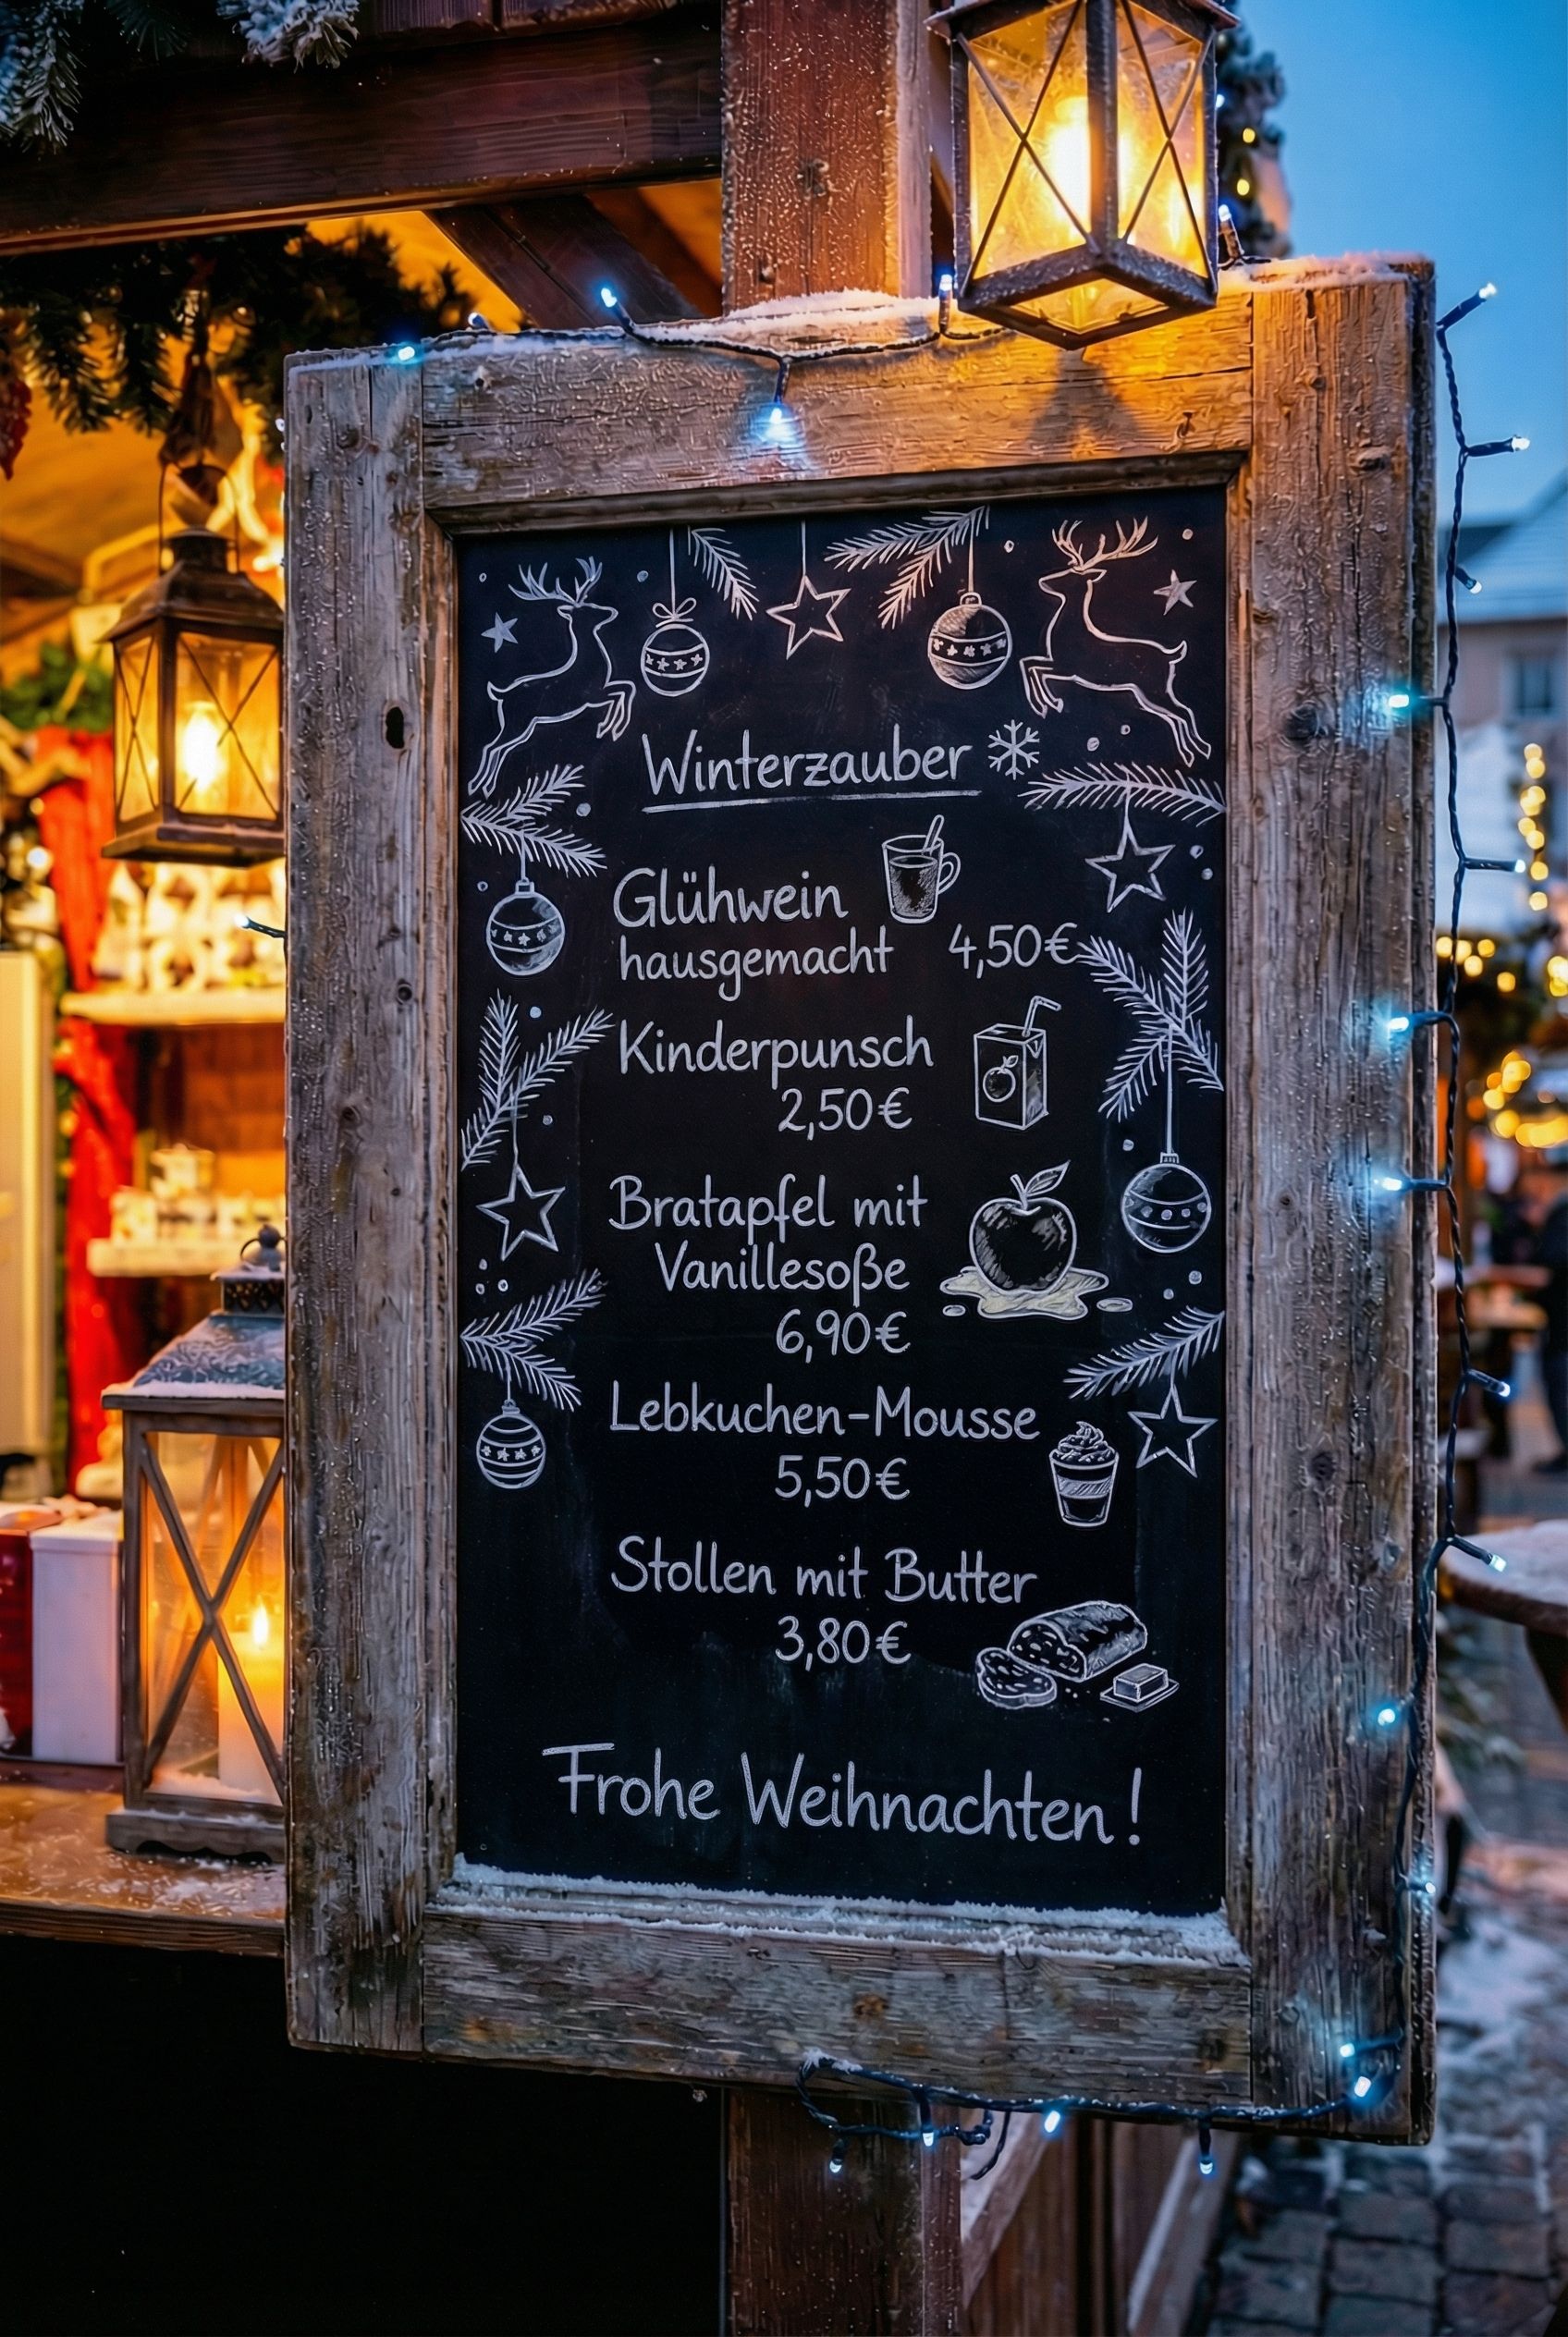 Winterzauber
Glühwein
hausgemacht 4,50€
Kinderpunsch
2,50€
Bratapfel mit
Vanillesoße
6,90€
Lebkuchen-Mousse
5,50€
Stollen mit Butter
3,80€
Frohe Weihnachten!